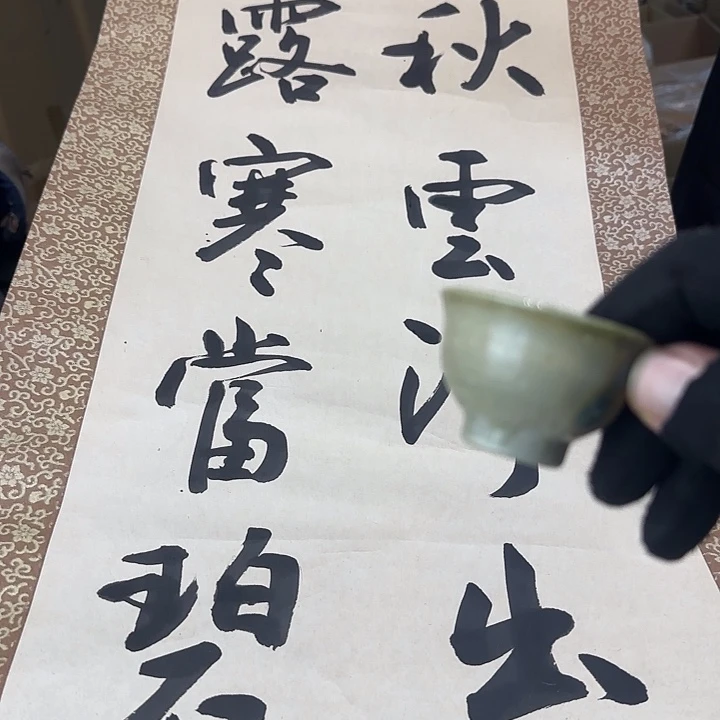 秋雲出
露寒當碧